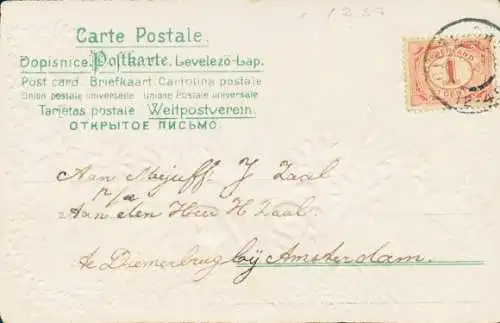 1239
Carte Postale.
Dopisnice. Postkarte. Levelező-Lap.
Post card. Briefkaart. Cartolina postale
Union postale universelle Unione Postale universale
Tarjetas postale Weltpostverein.
ОТКРЫТОЕ ПИСЬМО.
1
Aan Mejuff. J Zaal
p/a
Aan den Heer H Zaal.
te Diemerbrug bij Amsterdam.